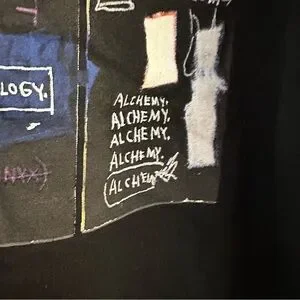 LOGY.
ALCHEMY.
ALCHEMY.
ALCHEMY.
ALCHEMY.
NYX)